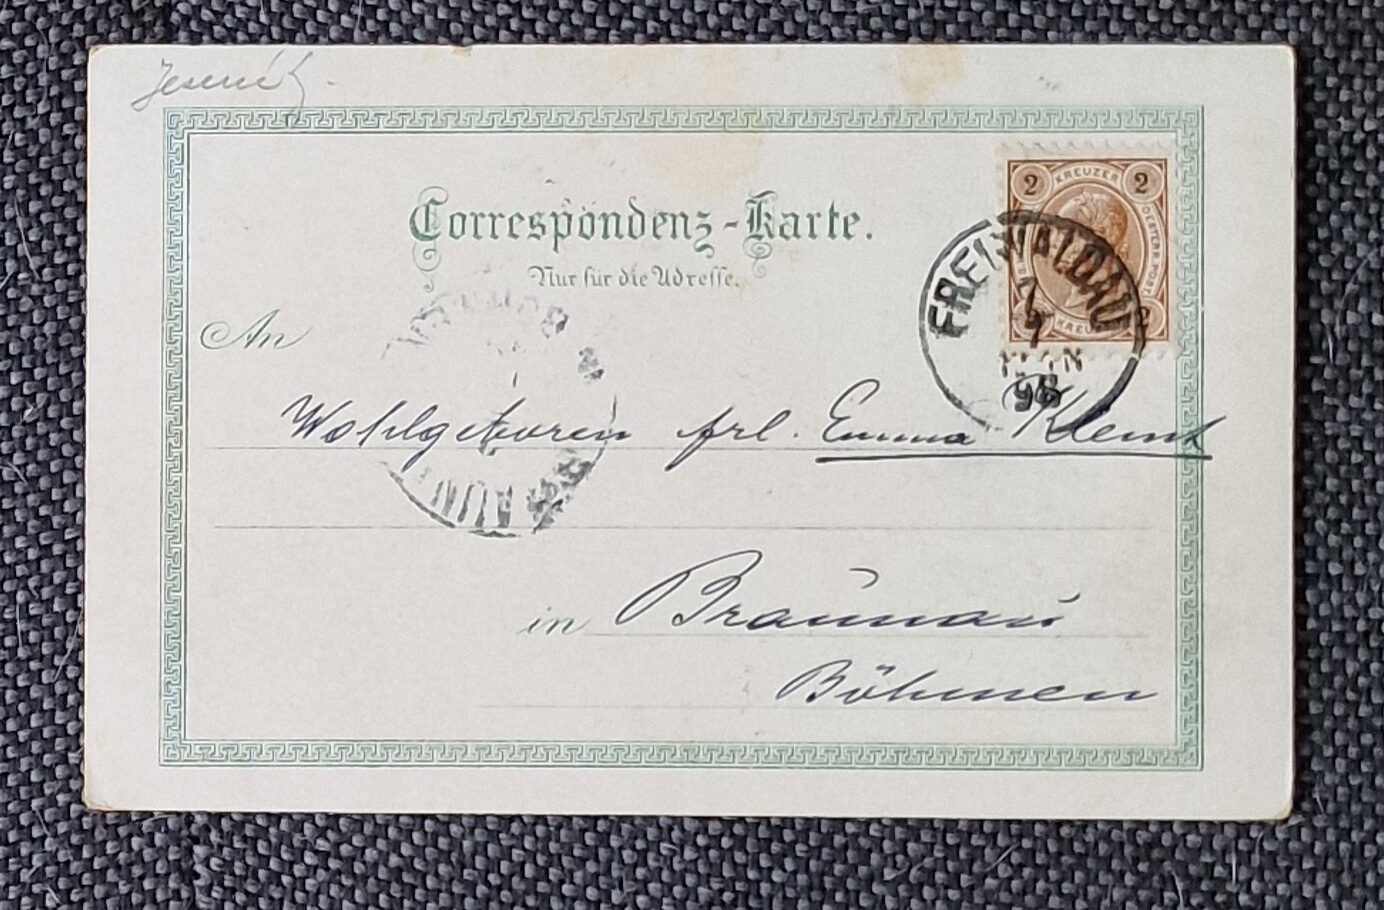 Jeseník.
Correspondenz-Karte.
Nur für die Adresse.
2 KREUZER 2
OESTERR. POST
FREIWALDAU
98
An
Wohlgeboren Frl. Emma
in Braunau
Böhmen